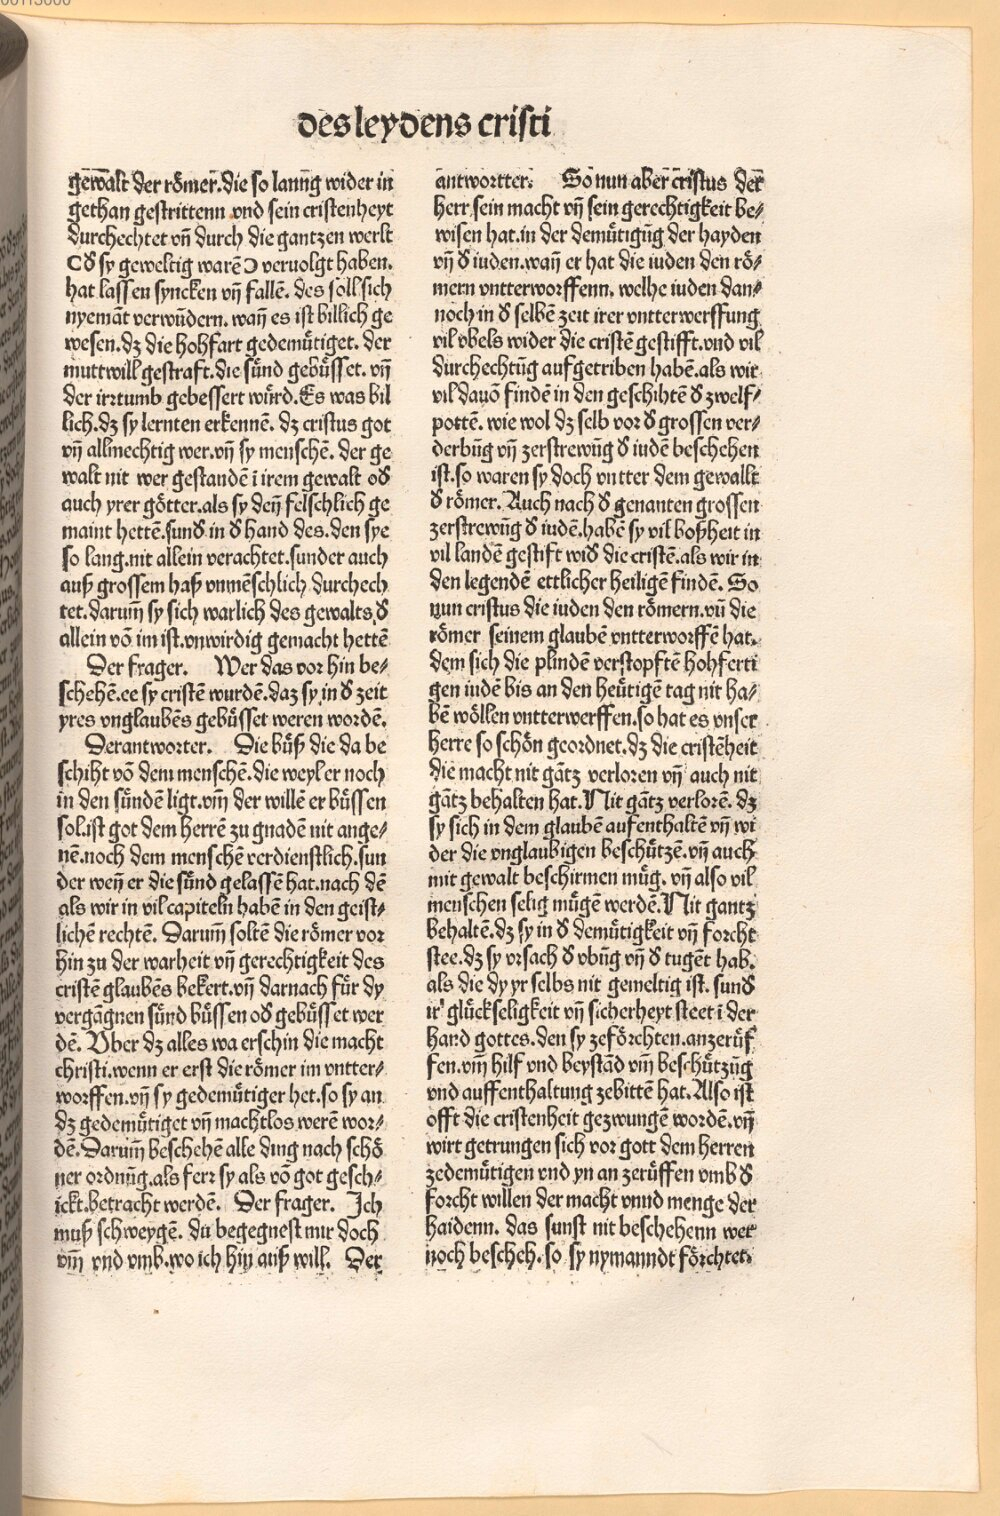 des leydens cristi
gewalt der römer.die so lanng wider in
gethan gestrittenn vnd sein cristenheyt
durchechtet vn̄ durch die gantzen werlt
(đ sy geweltig warē) vervolgt haben.
hat lassen syncken vn̄ fallē. des soll sich
nyemāt verwūdern. wan̄ es ist billich ge
wesen.dz die hohfart gedemütiget. der
muttwill gestraft.die sünd gebüsset. vn̄
der irrtumb gebessert würd.Es was bil
lich.dz sy lernten erkennē. dz cristus got
vn̄ allmechtig wer.vn̄ sy menschē. der ge
walt nit wer gestandē ī irem gewalt ođ
auch yrer götter.als sy den̄ felschlich ge
maint hettē.sunđ in đ hand des.den sye
so lang.nit allein verachtet.sunder auch
auß grossem haß vnmēschlich durchech
tet.darum̄ sy sich warlich des gewalts đ
allein vō im ist.vnwirdig gemacht hettē
Der frager. Wer das vor hin be⸗
schehē.ee sy cristē wurdē.daz sy in đ zeit
yres vnglaubēs gebüsset weren wordē.
Derantworter. Die büß die da be
schiht vō dem menschē.die weyl er noch
in den sündē ligt.vn̄ der willē er büssen
sol.ist got dem herrē zu gnadē nit ange⸗
nē.noch dem menschē verdienstlich.sun
der wen̄ er die sünd gelassē hat.nach dē
als wir in vil capiteln habē in den geist⸗
lichē rechtē. Darum̄ soltē die römer vor
hin zu der warheit vn̄ gerechtigkeit des
cristē glaubēs bekert.vn̄ darnach für dy
vergāgnen sünd büssen ođ gebüsset wer
dē. Vber dz alles wa erschin die macht
christi.wenn er erst die römer im vntter⸗
worffen.vn̄ sy gedemütiger het.so sy an
dz gedemütiget vn̄ machtlos werē wor⸗
dē.Darum̄ beschehē alle ding nach schö
ner ordnūg.als ferr sy als vō got gesch⸗
ickt.betracht werdē. Der frager. Ich
muß schweygē. du begegnest mir doch
vm̄ vnd vmb.wo ich hin auß will. Der
antwortter. So nun aber cristus der
herr sein macht vn̄ sein gerechtigkeit be⸗
wisen hat.in der demütigūg der hayden
vn̄ đ iuden.wan̄ er hat die iuden den rö⸗
mern vntterworffenn. welhe iuden dan⸗
noch in đ selbē zeit irer vntterwerffung
vil vbels wider die cristē gestifft.vnd vil
durchechtūg aufgetriben habē.als wir
vil dauō findē in den geschihtē đ zwelf⸗
pottē. wie wol dz selb vor đ grossen ver⸗
derbūg vn̄ zerstrewūg đ iudē beschehen
ist.so waren sy doch vntter dem gewallt
đ römer. Auch nach đ genanten grossen
zerstrewūg đ iudē.habē sy vil boßheit in
vil landē gestift wiđ die cristē.als wir in
den legendē ettlicher heiligē findē. So
nun cristus die iuden den römern.vn̄ die
römer seinem glaubē vntterworffē hat.
dem sich die plindē verstopftē hohferti
gen iudē bis an den heütigē tag nit ha⸗
bē wöllen vntterwerffen.so hat es vnser
herre so schön geordnet.dz die cristēheit
die macht nit gātz verloren vn̄ auch nit
gātz behalten hat.Nit gātz verlorē. dz
sy sich in dem glaubē aufenthaltē vn̄ wi
der die vnglaubigen beschützē.vn̄ auch
mit gewalt beschirmen müg. vn̄ also vil
menschen selig mügē werdē.Nit gantz
behaltē.dz sy in đ demütigkeit vn̄ forcht
stee.dz sy vrsach đ vbūg vn̄ đ tugēt hab.
als die dy yr selbs nit geweltig ist. sunđ
ir' glückseligkeit vn̄ sicherheyt steet ī der
hand gottes.den sy zeförchten.anzerüf
fen.vm̄ hilf vnd beystād vm̄ beschützūg
vnd auffenthaltung zebittē hat.Also ist
offt die cristenheit gezwungē wordē.vn̄
wirt getrungen sich vor gott dem herren
zedemütigen vnd yn an zerüffen vmb đ
forcht willen der macht vnnd menge der
haidenn. das sunst nit beschehenn wer
noch bescheh. so sy nymanndt förchtet.